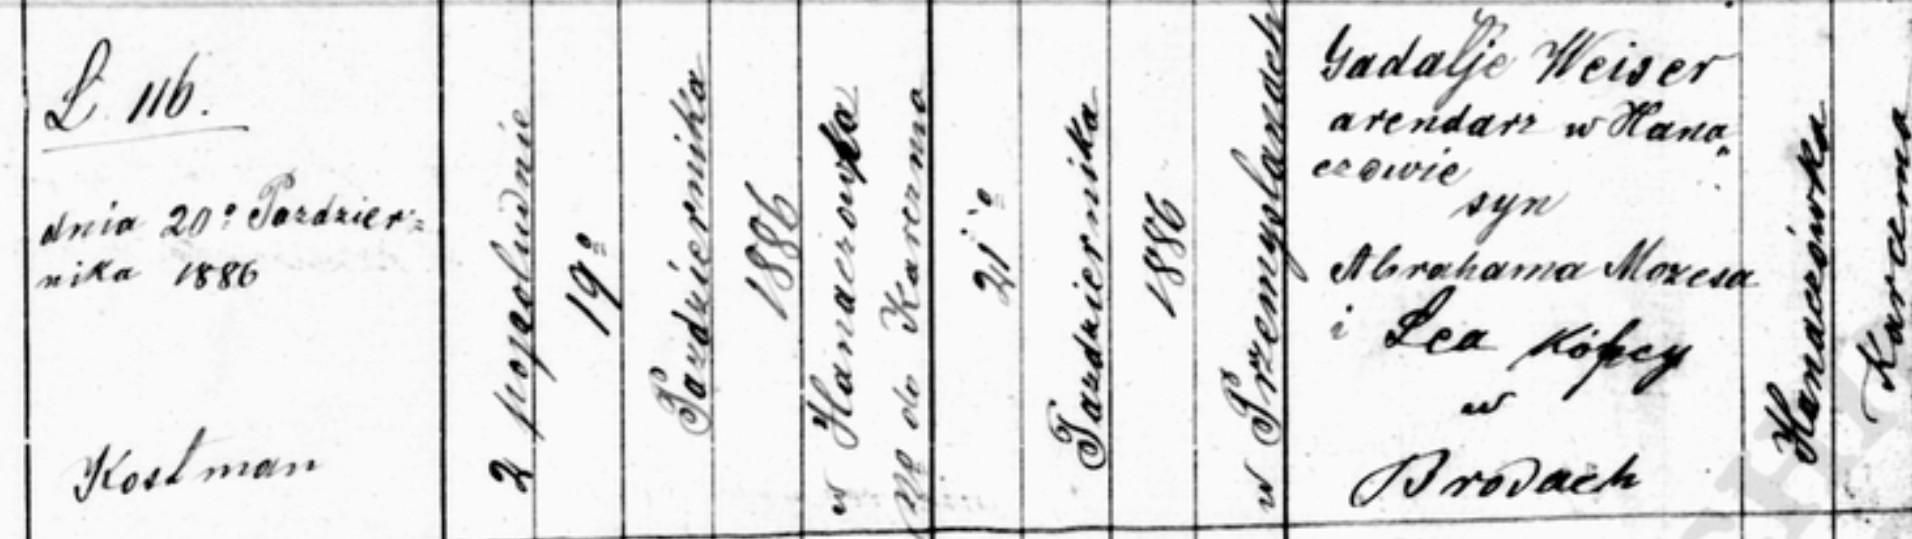 L. 116.
dnia 20º Pazdzier=
nika 1886
Kostman
2 popoludnie
19º
Pazdziernika
1886
w Hanaczowka
No do Karczma
21º
Pazdziernika
1886
w Przemyslanach
Gadalje Weiser
arendarz w Hana„
czowie
syn
Abrahama Mozesa
i Lea
w
Brodach
Hanaczówka
Karcema